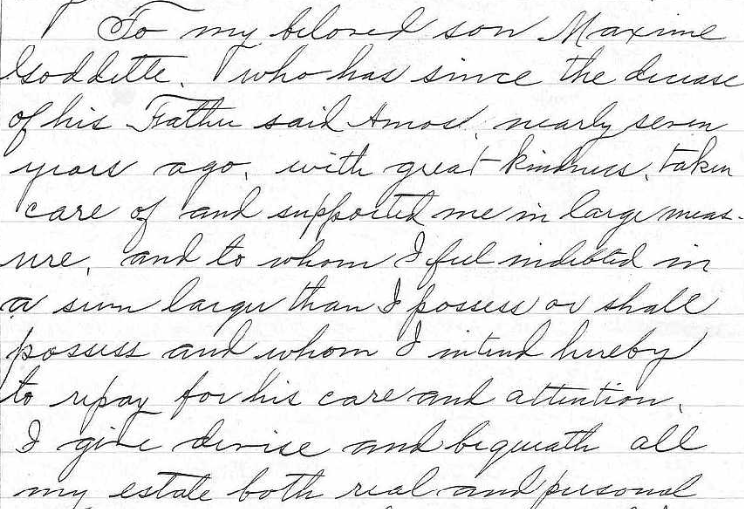 To my beloved son Maxime
Goddette, who has since the decease
of his Father said Amos, nearly seven
years ago, with great kindness, taken
care of and supported me in large meas-
ure, and to whom I feel indebted in
a sum larger than I possess or shall
possess and whom I intend hereby
to repay for his care and attention.
I give devise and bequeath all
my estate both real and personal